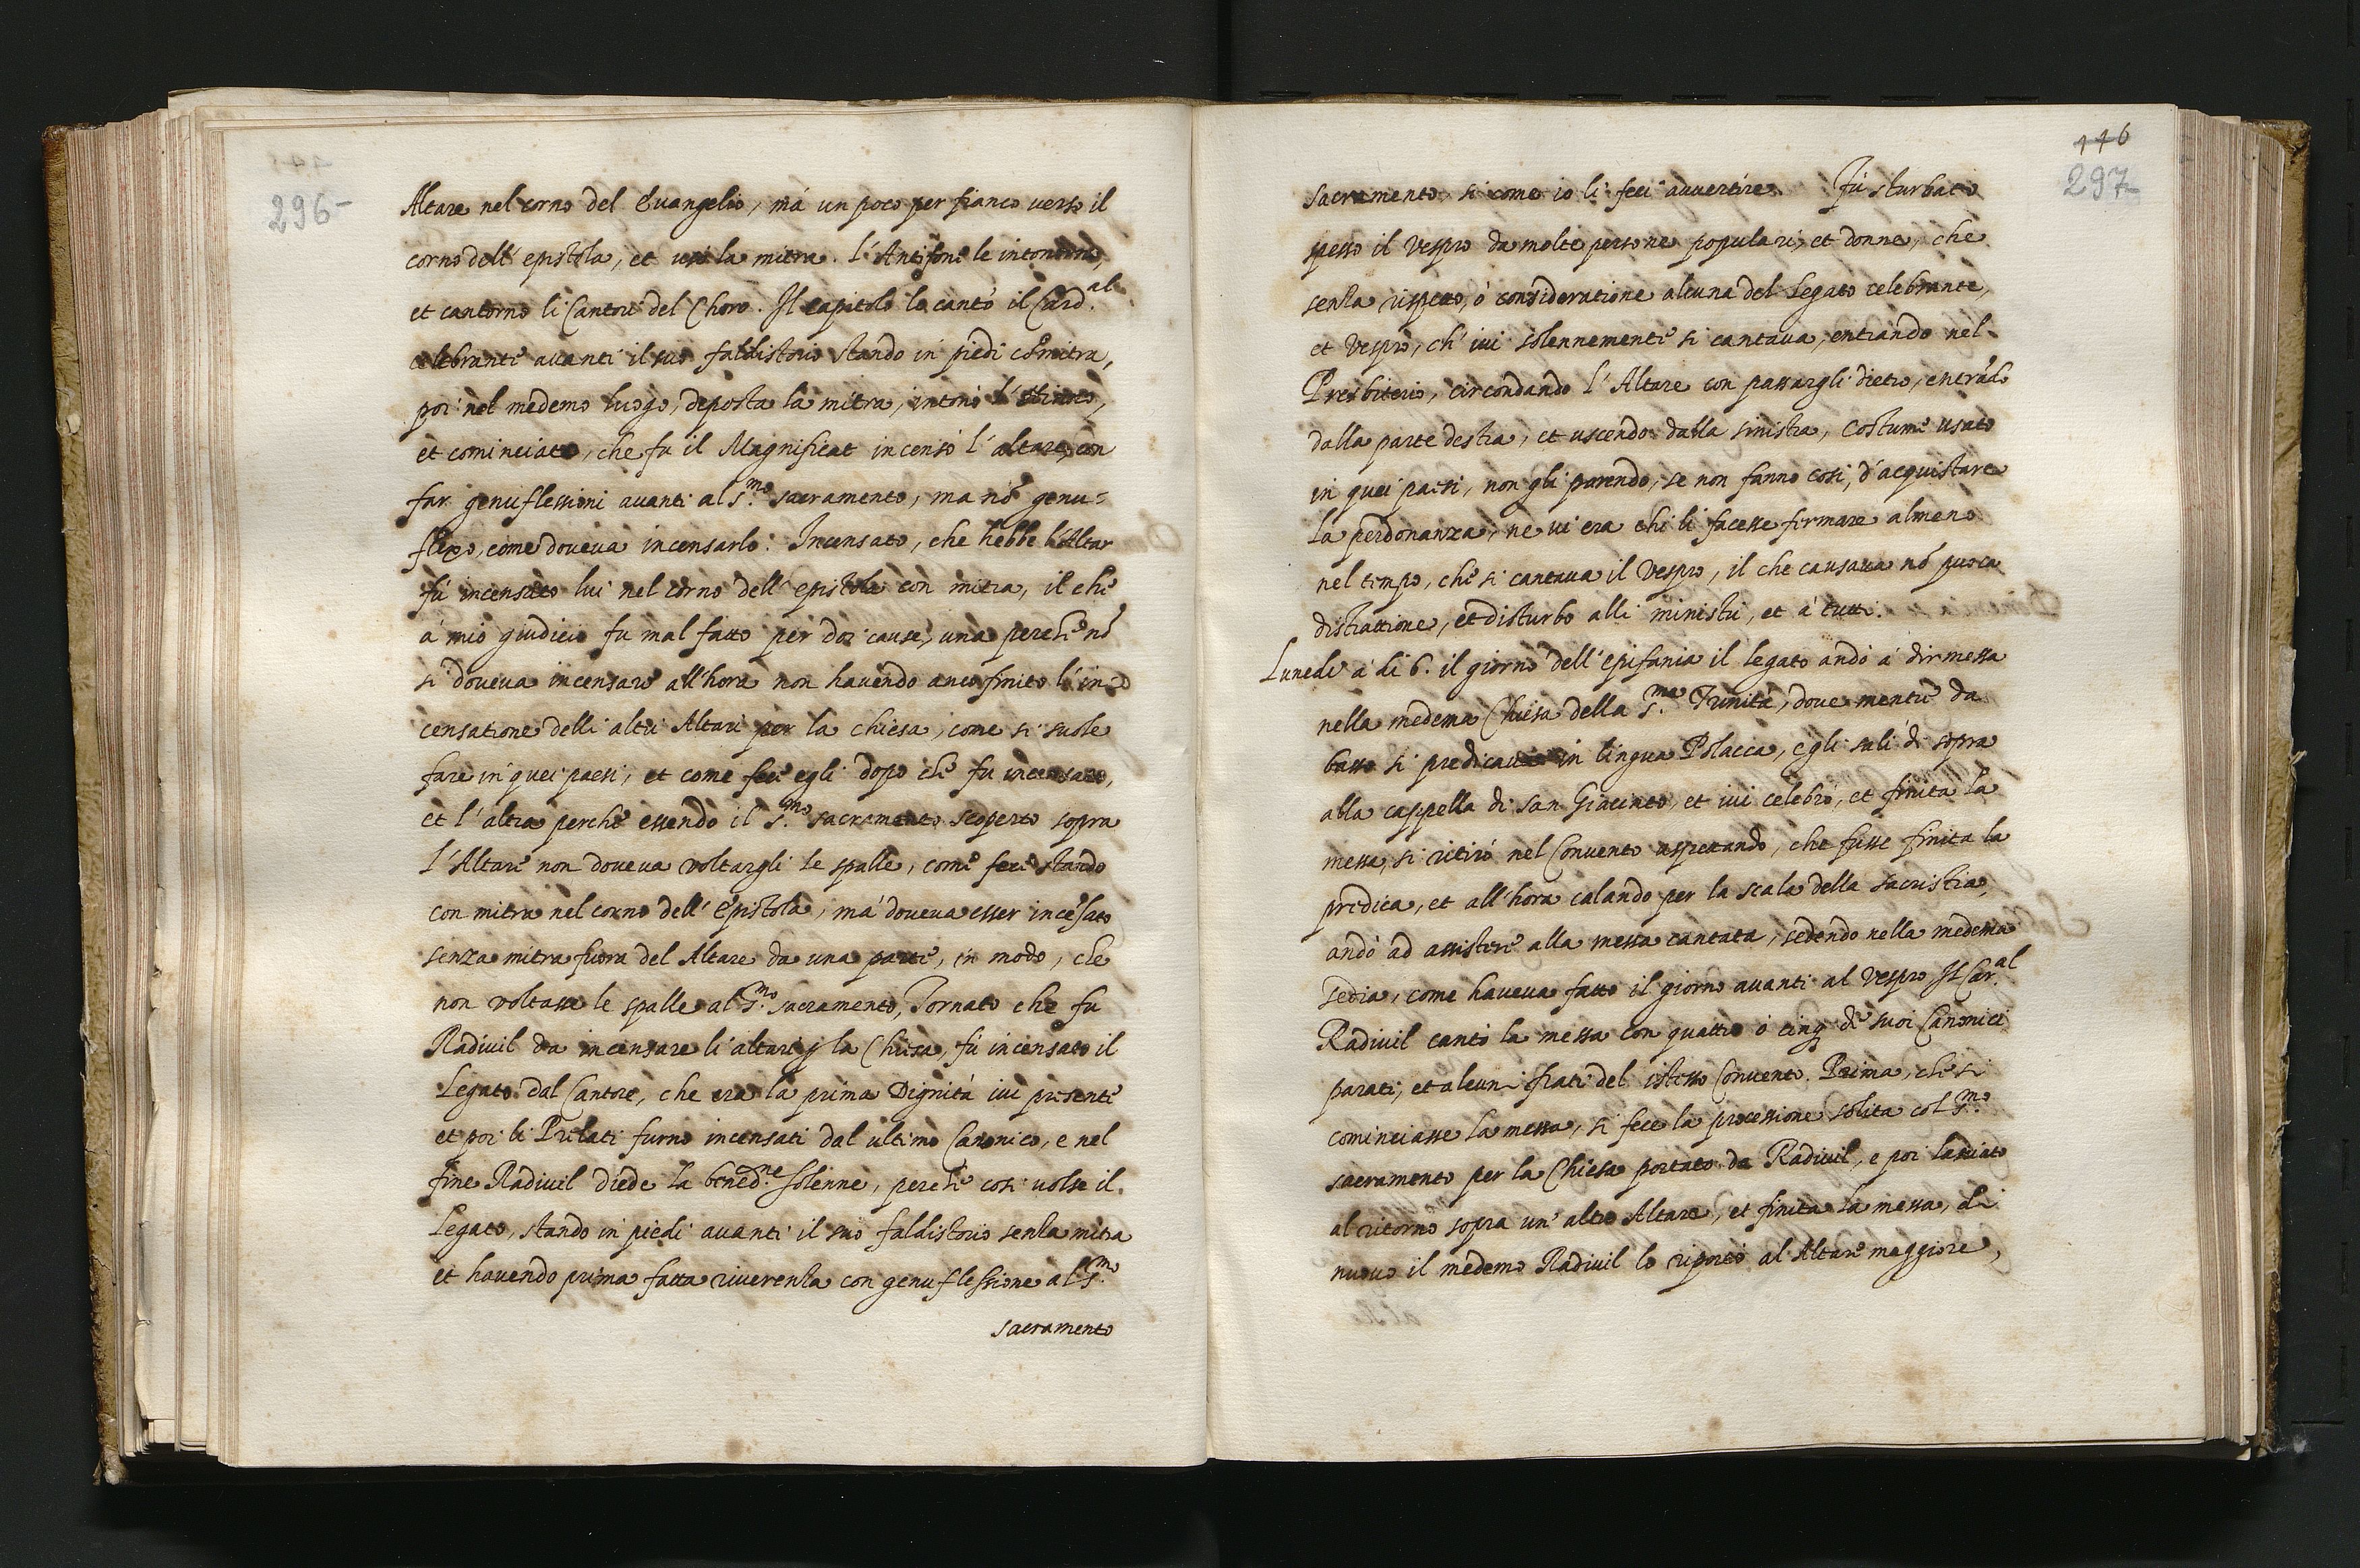 296
Altare nel corno del Evangelio, má un poco per fianco verso il
corno dell' epistola, et usó la mitra. l'Antifone le intonorno,
et cantorno li Cantori del Choro. Il capitolo lo cantó il Card.al
celebrante avanti il suo faldistorio stando in piedi cõ mitra,
poi nel medemo luogo, deposta la mitra, intonó l'
et cominciato, che fu il Magnificat incensó l'altare, con
far genuflessioni avanti al S.mo sacramento, ma nõ genu=
flexo, come doveva incensarlo. Incensato, che hebbe l'Altar
fú incensato lui nel corno dell' epistola con mitra, il che
á mio giudicio fu mal fatto per doi cause, una perche nõ
si doveva incensare all'hora non havendo anco finito l'in=
censatione delli altri Altari per la chiesa, come si suole
fare in quei paesi, et come fece egli dopo che fu incensato,
et l'altra perche essendo il S.mo sacramento scoperto sopra
l'Altare non doveva voltargli le spalle, come fece stando
con mitra nel corno dell' Epistola, má doveva esser incẽsato
senza mitra fuora del Altare da una parte, in modo, che
non voltasse le spalle al S.mo sacramento, Tornato che fu
Radivil da incensare li altari p la Chiesa, fú incensato il
Legato dal Cantore, che era la prima Dignitá ivi presente
et poi li Prelati furno incensati dal ultimo Canonico, e nel
fine Radivil diede la bened.ne solenne, perche cosi volse il
Legato, stando in piedi avanti il suo faldistorio senza mitra
et havendo prima fatta riverenza con genuflessione al S.mo
sacramento
116
297
sacramento si come io li feci avvertire. Fú sturbato
spesso il vespro da molte persone populari, et donne, che
senza rispetto, ó consideratione alcuna del Legato celebrante,
et vespro, ch' ivi solennemente si cantava, entrando nel
Presbiterio, circondando l'Altare con passargli dietro, entrãdo
dalla parte destra, et uscendo dalla sinistra, costume usato
in quei paesi, non gli parendo, se non fanno cosi, d'acquistare
la perdonanza, ne vi era chi li facesse firmare almeno
nel tempo, che si cantava il vespro, il che causava nõ puoca
distrattione, et disturbo alli ministri, et á tutti.
Lunedi á di 6. il giorno dell'epifania il legato andó á dir messa
nella medema Chiesa della S.ma Trinitá, dove mentre da
basso si predicava in lingua Polacca, egli salí di sopra
alla cappella di san Giacinto, et ivi celebró, et finita la
messa, si ritiró nel Convento aspettando, che fusse finita la
predica, et all'hora calando per la scala della sacristia,
andó ad assistere alla messa cantata, sedendo nella medema
sedia, come haveva fatto il giorno avanti al vespro Il Car.al
Radivil cantó la messa con quattro ó cinq de suoi Canonici
parati, et alcuni frati del istesso Convento. Prima, che si
cominciasse la messa, si fece la processione solita col S.mo
sacramento per la Chiesa portato da Radivil, e poi lasciato
al ritorno sopra un' altro Altare, et finita la messa, di
nuovo il medemo Radivil lo riportó al Altare maggiore,